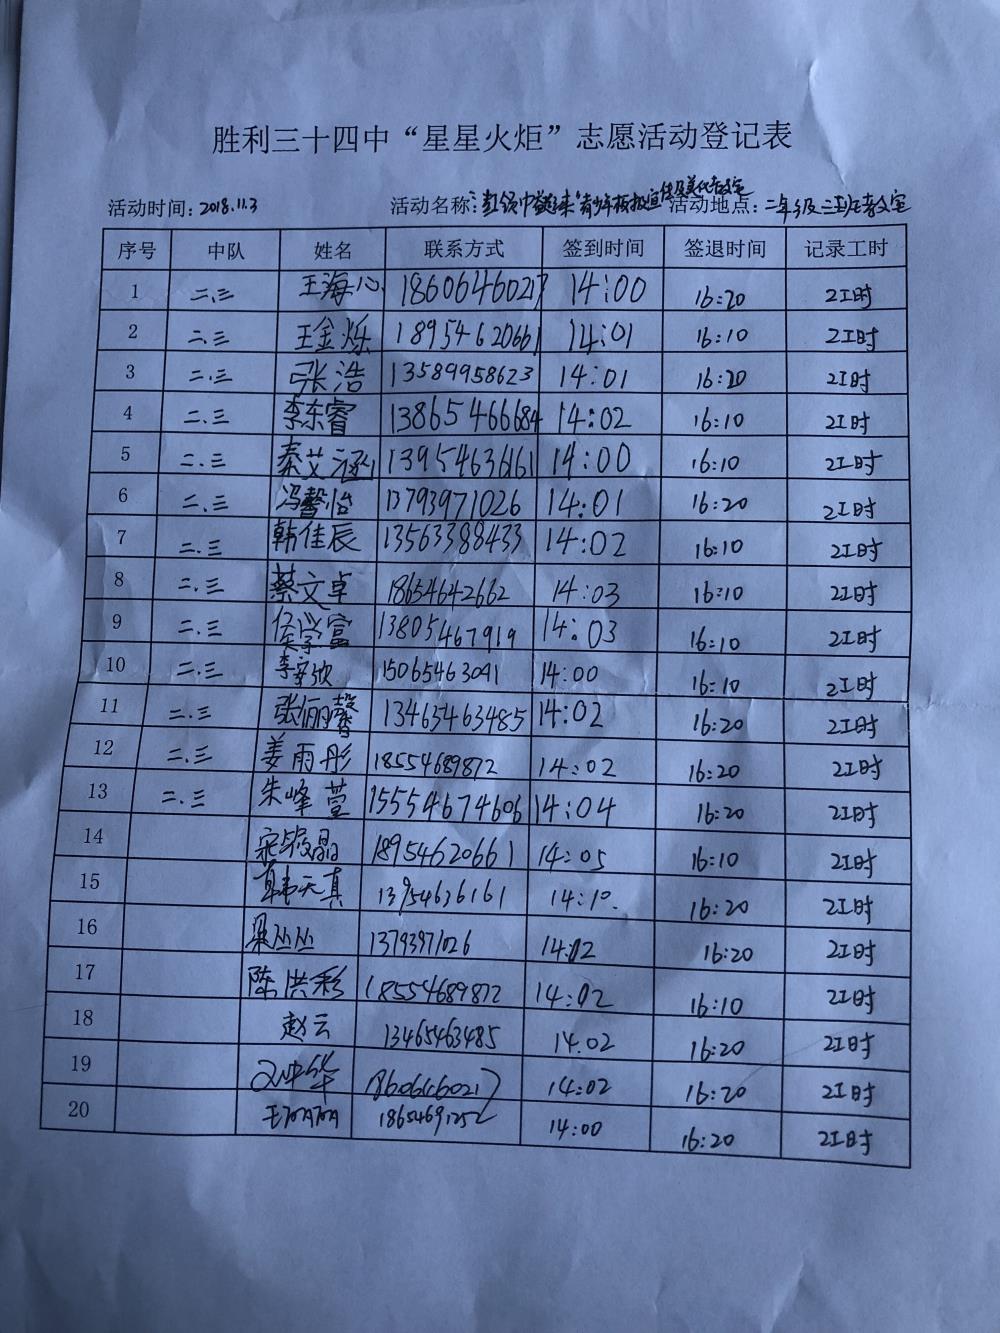 胜利三十四中“星星火炬”志愿活动登记表
活动时间：2018.11.3 活动名称： 活动地点：二年级三班教室
序号 中队 姓名 联系方式 签到时间 签退时间 记录工时
1 二.三 王海心 18606460217 14:00 16:20 2工时
2 二.三 王金烁 18954620661 14:01 16:10 2工时
3 二.三 张浩 13589958623 14:01 16:20 2工时
4 二.三 李东睿 13865466684 14:02 16:10 2工时
5 二.三 秦艾涵 13954636161 14:00 16:10 2工时
6 二.三 冯馨怡 13793971026 14:01 16:20 2工时
7 二.三 韩佳辰 13563388433 14:02 16:10 2工时
8 二.三 蔡文卓 18654642662 14:03 16:10 2工时
9 二.三 13805467919 14:03 16:10 2工时
10 二.三 李安欣 15065463091 14:00 16:10 2工时
11 二.三 张俪馨 13465463485 14:02 16:20 2工时
12 二.三 姜雨彤 18554689872 14:02 16:20 2工时
13 二.三 朱峰萱 15554674606 14:04 16:20 2工时
14 18954620661 14:05 16:10 2工时
15 13954636161 14:10. 16:20 2工时
16 梁丛丛 13793971026 14:02 16:20 2工时
17 陈洪彩 18554689872 14:02 16:10 2工时
18 赵云 13465463485 14.02 16:20 2工时
19 18606460217 14:02 16:20 2工时
20 18654691252 14:00 16:20 2工时